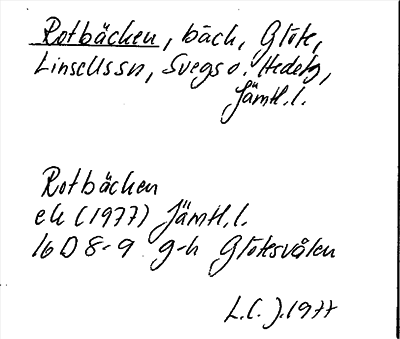 Rotbäcken, bäck, Glöte,
Linsellssn, Svegs o. Hedetg,
Jämtl. l.
Rotbäcken
ek (1977) Jämtl. l.
16 D 8-9 g-h Glötesvålen
L.C.J. 1977